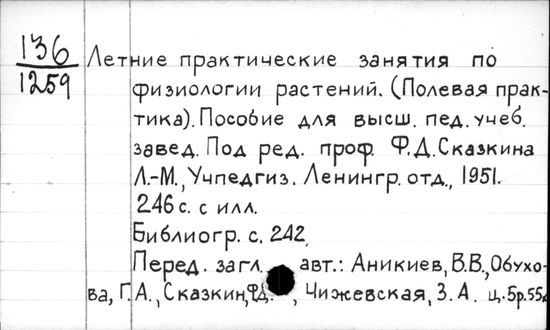 136
1259
Летние практические занятия по
физиологии растений. (Полевая прак-
тика). Пособие для высш. пед. учеб.
завед. Под ред. проф. Ф.Д. Сказкина
Л.-М., Учпедгиз. Ленингр. отд., 1951.
246 с. с илл.
Библиогр. с. 242.
Перед. загл. авт.: Аникиев, В.В., Обухо-
ва, Г.А., Сказкин, Ф.Д., Чижевская, З.А. ц. 5р. 55к